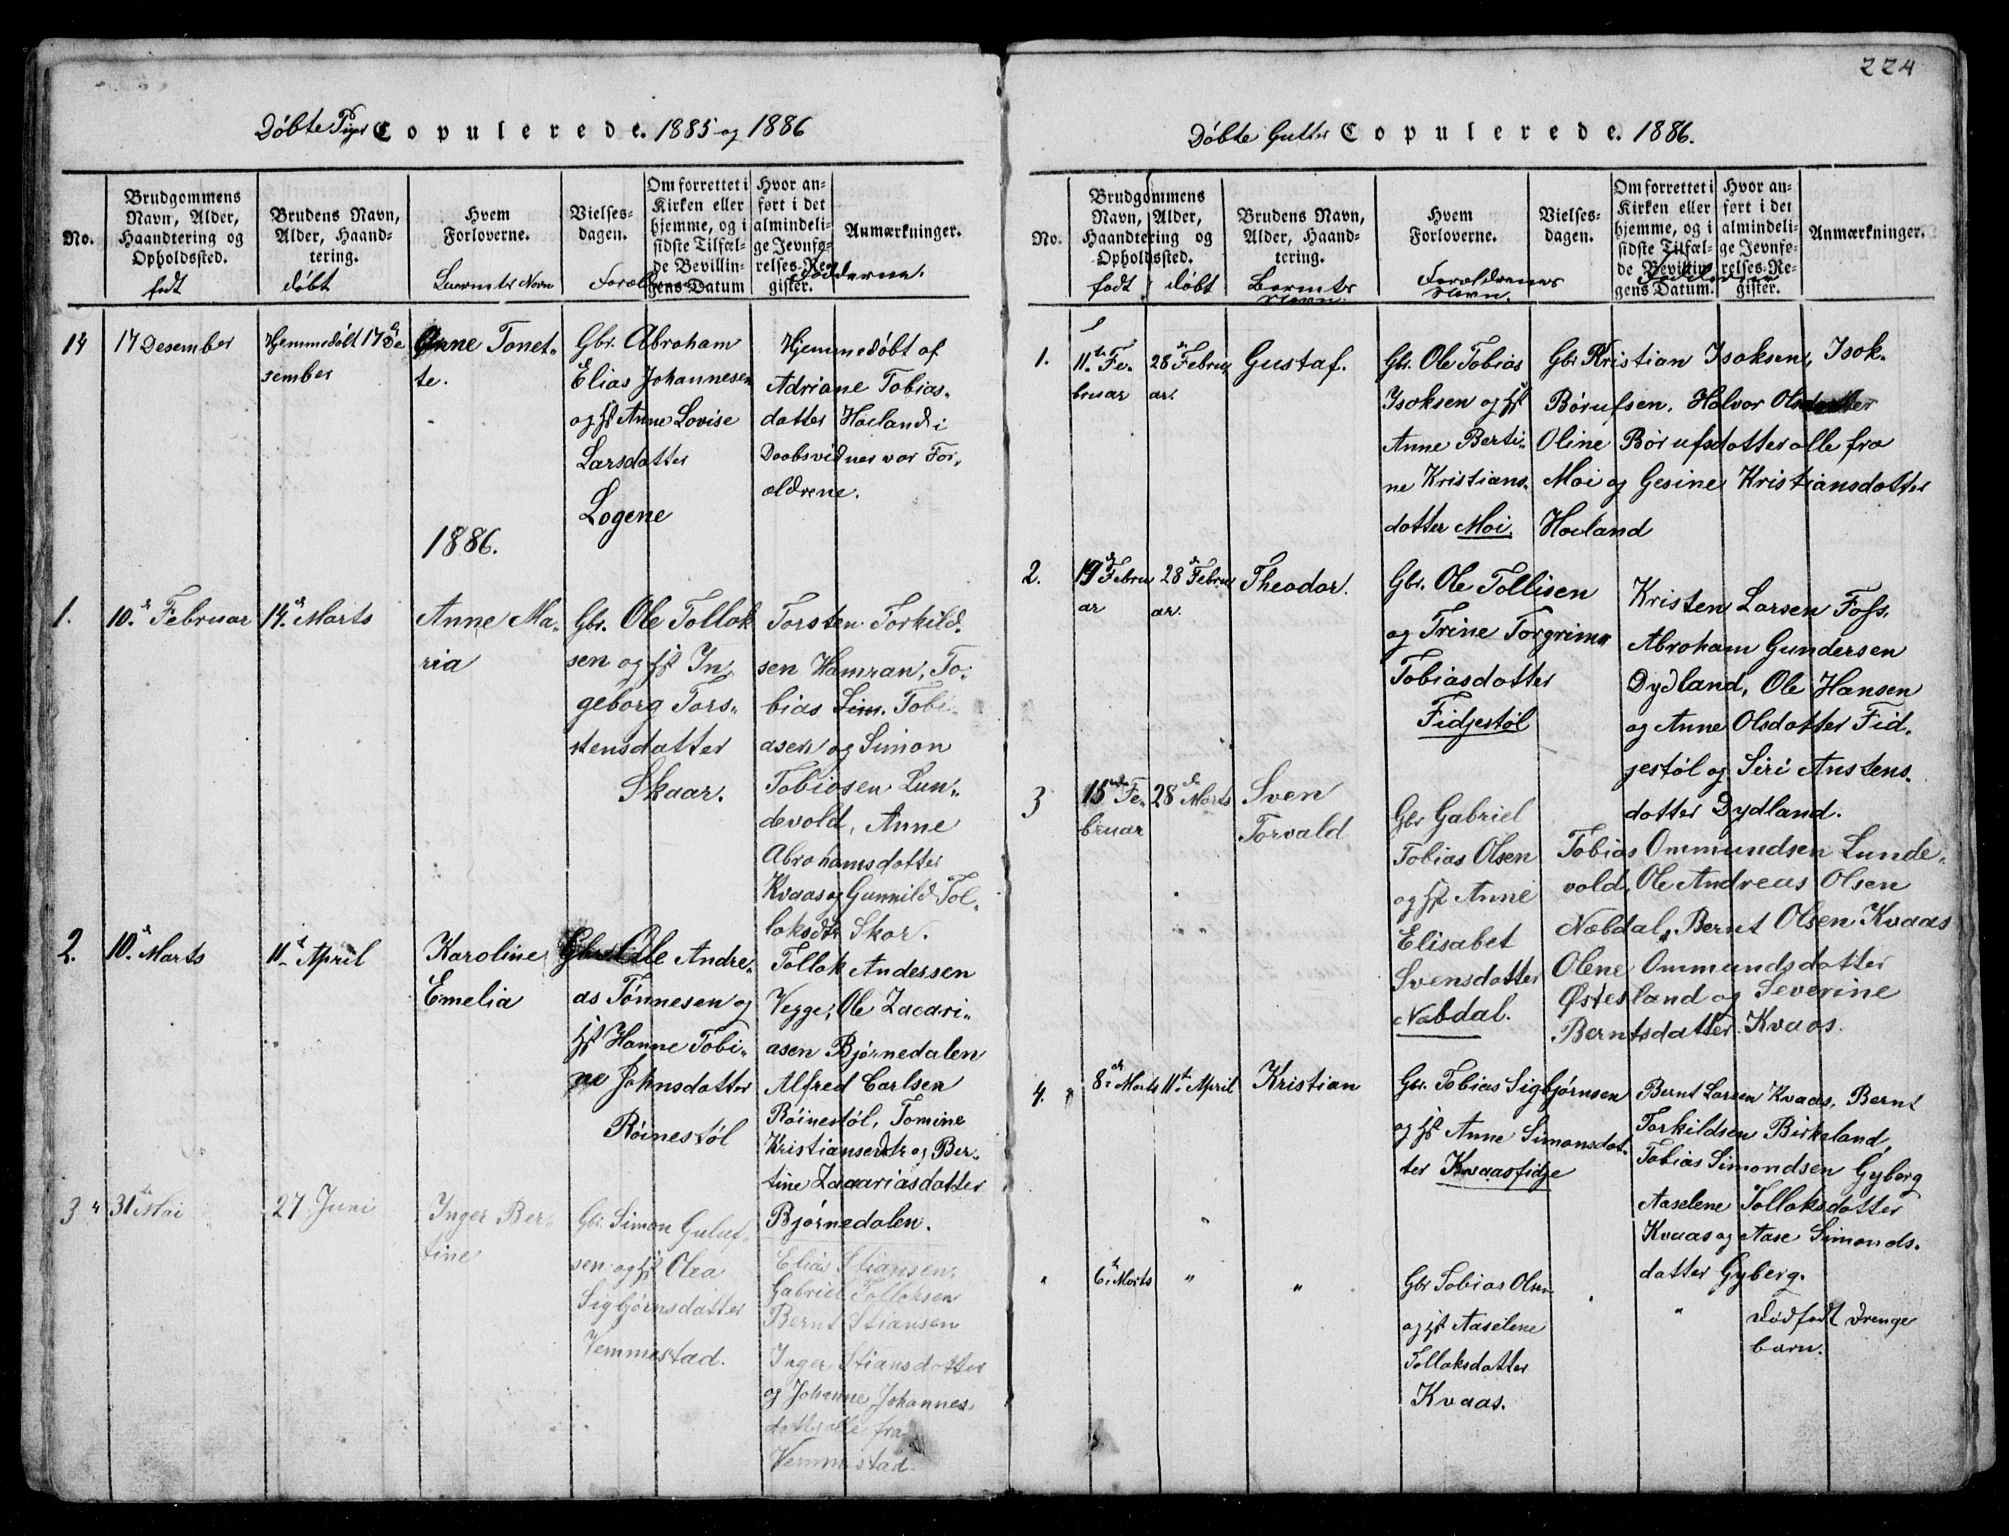 224
Døbte Piger Copulerede. 1885 og 1886
No.
Brudgommens
Navn, Alder,
Haandtering og
Opholdssted.
født
Brudens Navn,
Alder, Haand-
tering.
døbt
Hvem
Forloverne.
Navn
Vielses-
dagen.
Om forrettet i
Kirken eller
hjemme, og i
sidste Tilfæl-
de Bevillin-
gens Datum
Hvor an-
ført i det
almindeli-
ge Jevnfø-
relses-Re-
gister.
Anmærkninger.
Fadderne.
14
17 Desember
Hjemmedöbt 17de De
sember
Anne Tonet-
te.
Gbr. Abraham
Elias Johannesen
og Hst Anne Lovise
Larsdatter
Logene
Hjemmedöbt af
Adriane Tobias-
datter Hæland i
Daabsvidner var For-
ældrene.
1886.
1.
10. Februar
14. Marts
Anne Ma-
ria
Gbr. Ole Tollak
sen og Hst In
geborg Tors-
stensdatter
Skaar.
Torsten Torkild-
sen Hamran, To-
bias Sim. Tobi-
asen og Simon
Tobiasen Lun-
devold, Anne
Abrahamsdatter
Kvaas og Gunnild Tol-
laksdtr Skar.
2.
10. Marts
11te April
Karoline
Emelia
Gbr Ole Andre-
as Tønnesen og
Hst Hanne Tobi-
ne Johnsdatter
Röinestöl
Tollak Andersen
Vegge, Ole Zacari-
asen Bjørnedalen
Alfred Carlsen
Röinestöl, Tomine
Kristiansendtr og Ber-
tine Zacariasdatter
Bjørnedalen.
3
31te Mai
27 Juni
Inger Ber-
tine
Gbr. Simon Guluf-
sen og Hst Olea
Sigbjörnsdatter
Vemmestad.
Elias Stiansen,
Gabriel Tollaksen
Bernt Stiansen
Inger Stiansdatter
og Johanne Johannes-
datter alle fra
Vemmestad.
Døbte Gutter Copulerede. 1886.
No.
Brudgommens
Navn, Alder,
Haandtering og
Opholdssted.
født døbt
Brudens Navn,
Alder, Haand-
tering.
Barnets
Navn.
Hvem
Forloverne.
Forældrenes
Navn.
Vielses-
dagen.
Om forrettet i
Kirken eller
hjemme, og i
sidste Tilfæl-
de Bevillin-
gens Datum.
Hvor an-
ført i det
almindeli-
ge Jevnfø-
relses-Re-
gister.
Anmærkninger.
1.
11te Fe-
bruar
28 Febru
ar.
Gustaf.
Gbr. Ole Tobias
Isaksen og Hst
Anne Berti-
ne Kristians-
datter Moi.
Gbr Kristian Isaksen, Isak
Börufsen, Halvor Olsdatter
Oline Börufsdatter alle fra
Moi og Gesine Kristiansdatter
Hæland
2.
19 Febru
ar
28 Febru
ar.
Theodor.
Gbr. Ole Tollisen
og Trine Torgrima
Tobiasdatter
Fidjestöl
Kristen Larsen Foss.
Abraham Gundersen
Dydland, Ole Hansen
og Anne Olsdatter Fid-
jestöl og Siri Anstens-
datter Dydland.
3
15 Fe-
bruar
28 Marts
Sven
Torvald
Gbr Gabriel
Tobias Olsen
og Hst Anne
Elisabet
Svensdatter
Nabdal.
Tobias Ommundsen Lunde-
vold, Ole Andreas Olsen
Nabdal, Bernt Olsen Kvaas
Olene Ommundsdatter
Østesland og Severine
Berntsdatter Kvaas.
4.
8. Marts
11te April
Kristian
Gbr. Tobias Sigbjörnsen
og Hst Anne Simonsdat-
ter Kvaasfidje
Bernt Larsen Kvaas, Bernt
Torkildsen Birkeland,
Tobias Simondsen Gyberg
Aaselene Tollaksdatter
Kvaas og Aase Simonds-
datter Gyberg.
"
6te Marts
"
"
Gbr Tobias Olsen
og Hst Aaselene
Tollaksdatter
Kvaas.
"
Dødfødt Drenge
barn.